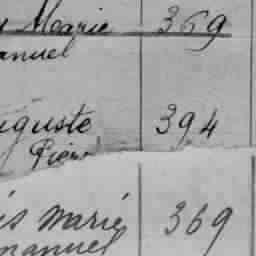 Marie 369
anuel
guste 394
Pierre
is Marie 369
manuel